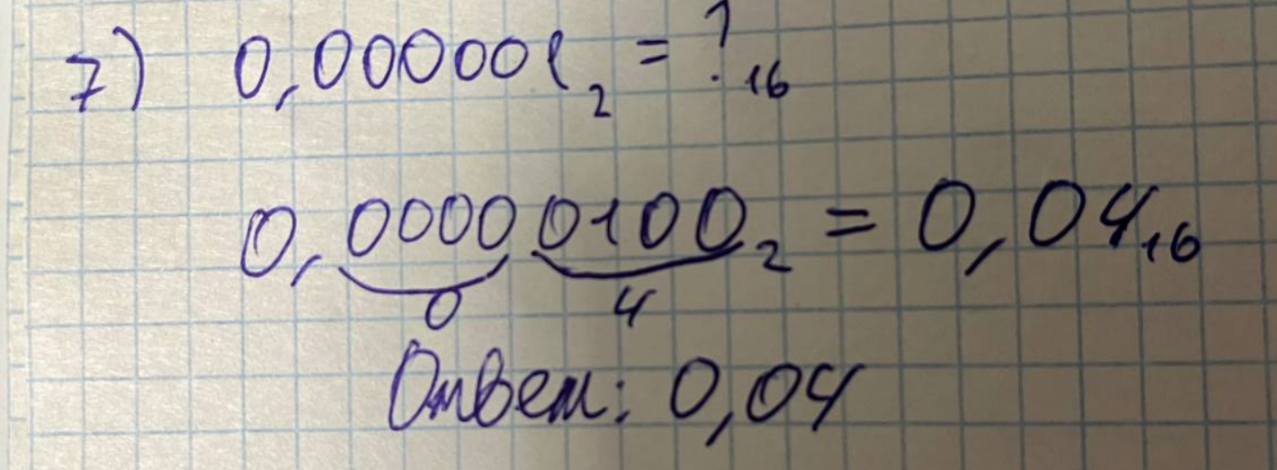 7) 0,000001₂ = ?₁₆
0,00000100₂ = 0,04₁₆
0 4
Ответ: 0,04